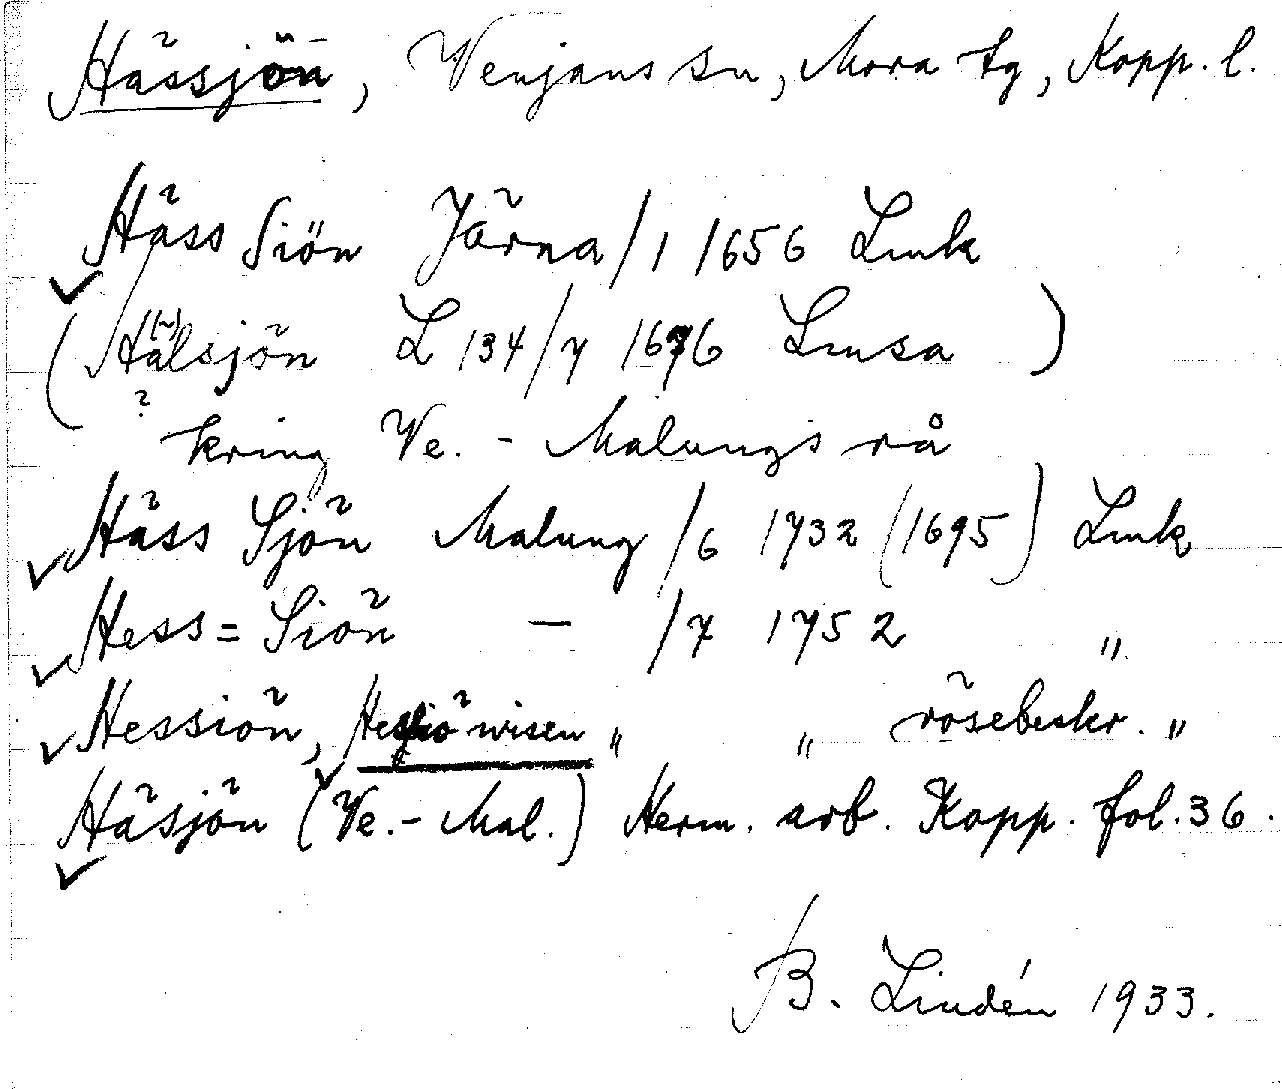 Hässjön, Venjans sn, Mora tg, Kopp. l.
Häss Siön Järna /1 1656 Lmk
(Hälsjön L 134/7 1676 Lmsa)
?
kring Ve. - Malungs rå
Häss Sjön Malung /6 1732 (1695) Lmk
Hess= Siön — /7 1752 "
Hessiön, Hessiö wisen " " rösebeskr. "
Häsjön (Ve.- Mal.) Herm. arb. Kopp. fol. 36.
B. Lindén 1933.